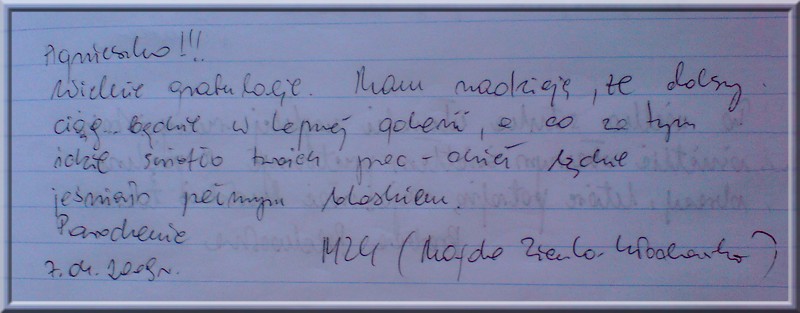 Agnieszko!!!
Wielkie gratulacje. Mam nadzieję, że dalszy
ciąg będzie w lepszej galerii, a co za tym
idzie światło twoich prac - dzieł będzie
jaśniało pełnym blaskiem
Pozdrawiam
7.04.2009r. MZK (Magda